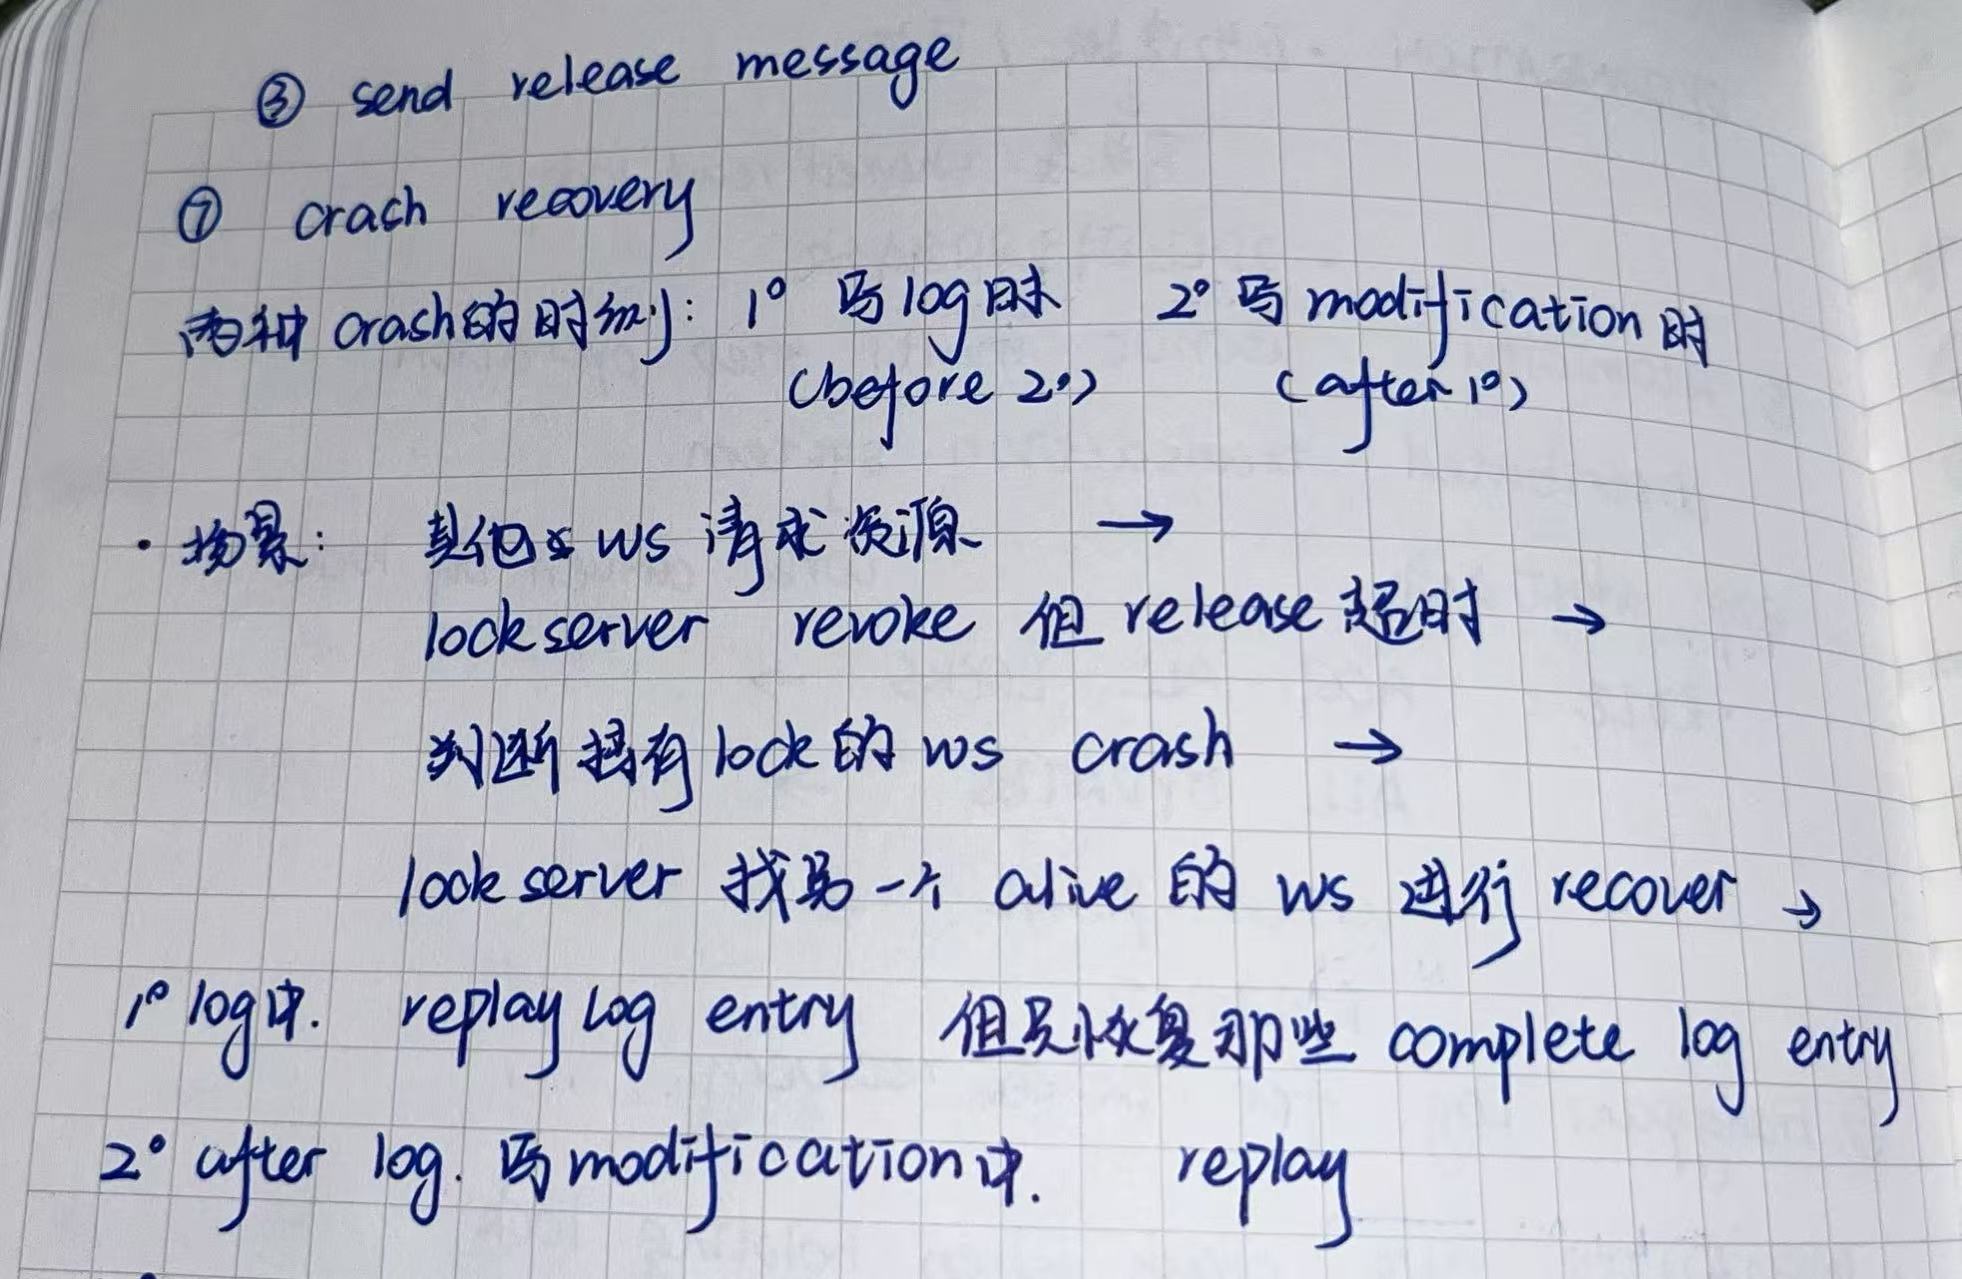 ③ send release message
⑦ crach recovery
两种 crash的时刻: 1° 写log时 2° 写 modification 时
(before 2°) (after 1°)
· 场景: 其他 ws 请求资源 →
lock server revoke 但 release 超时 →
判断拥有 lock 的 ws crash →
lock server 找另一个 alive 的 ws 进行 recover →
1° log中. replay log entry 但只恢复那些 complete log entry
2° after log. 写 modification中. replay